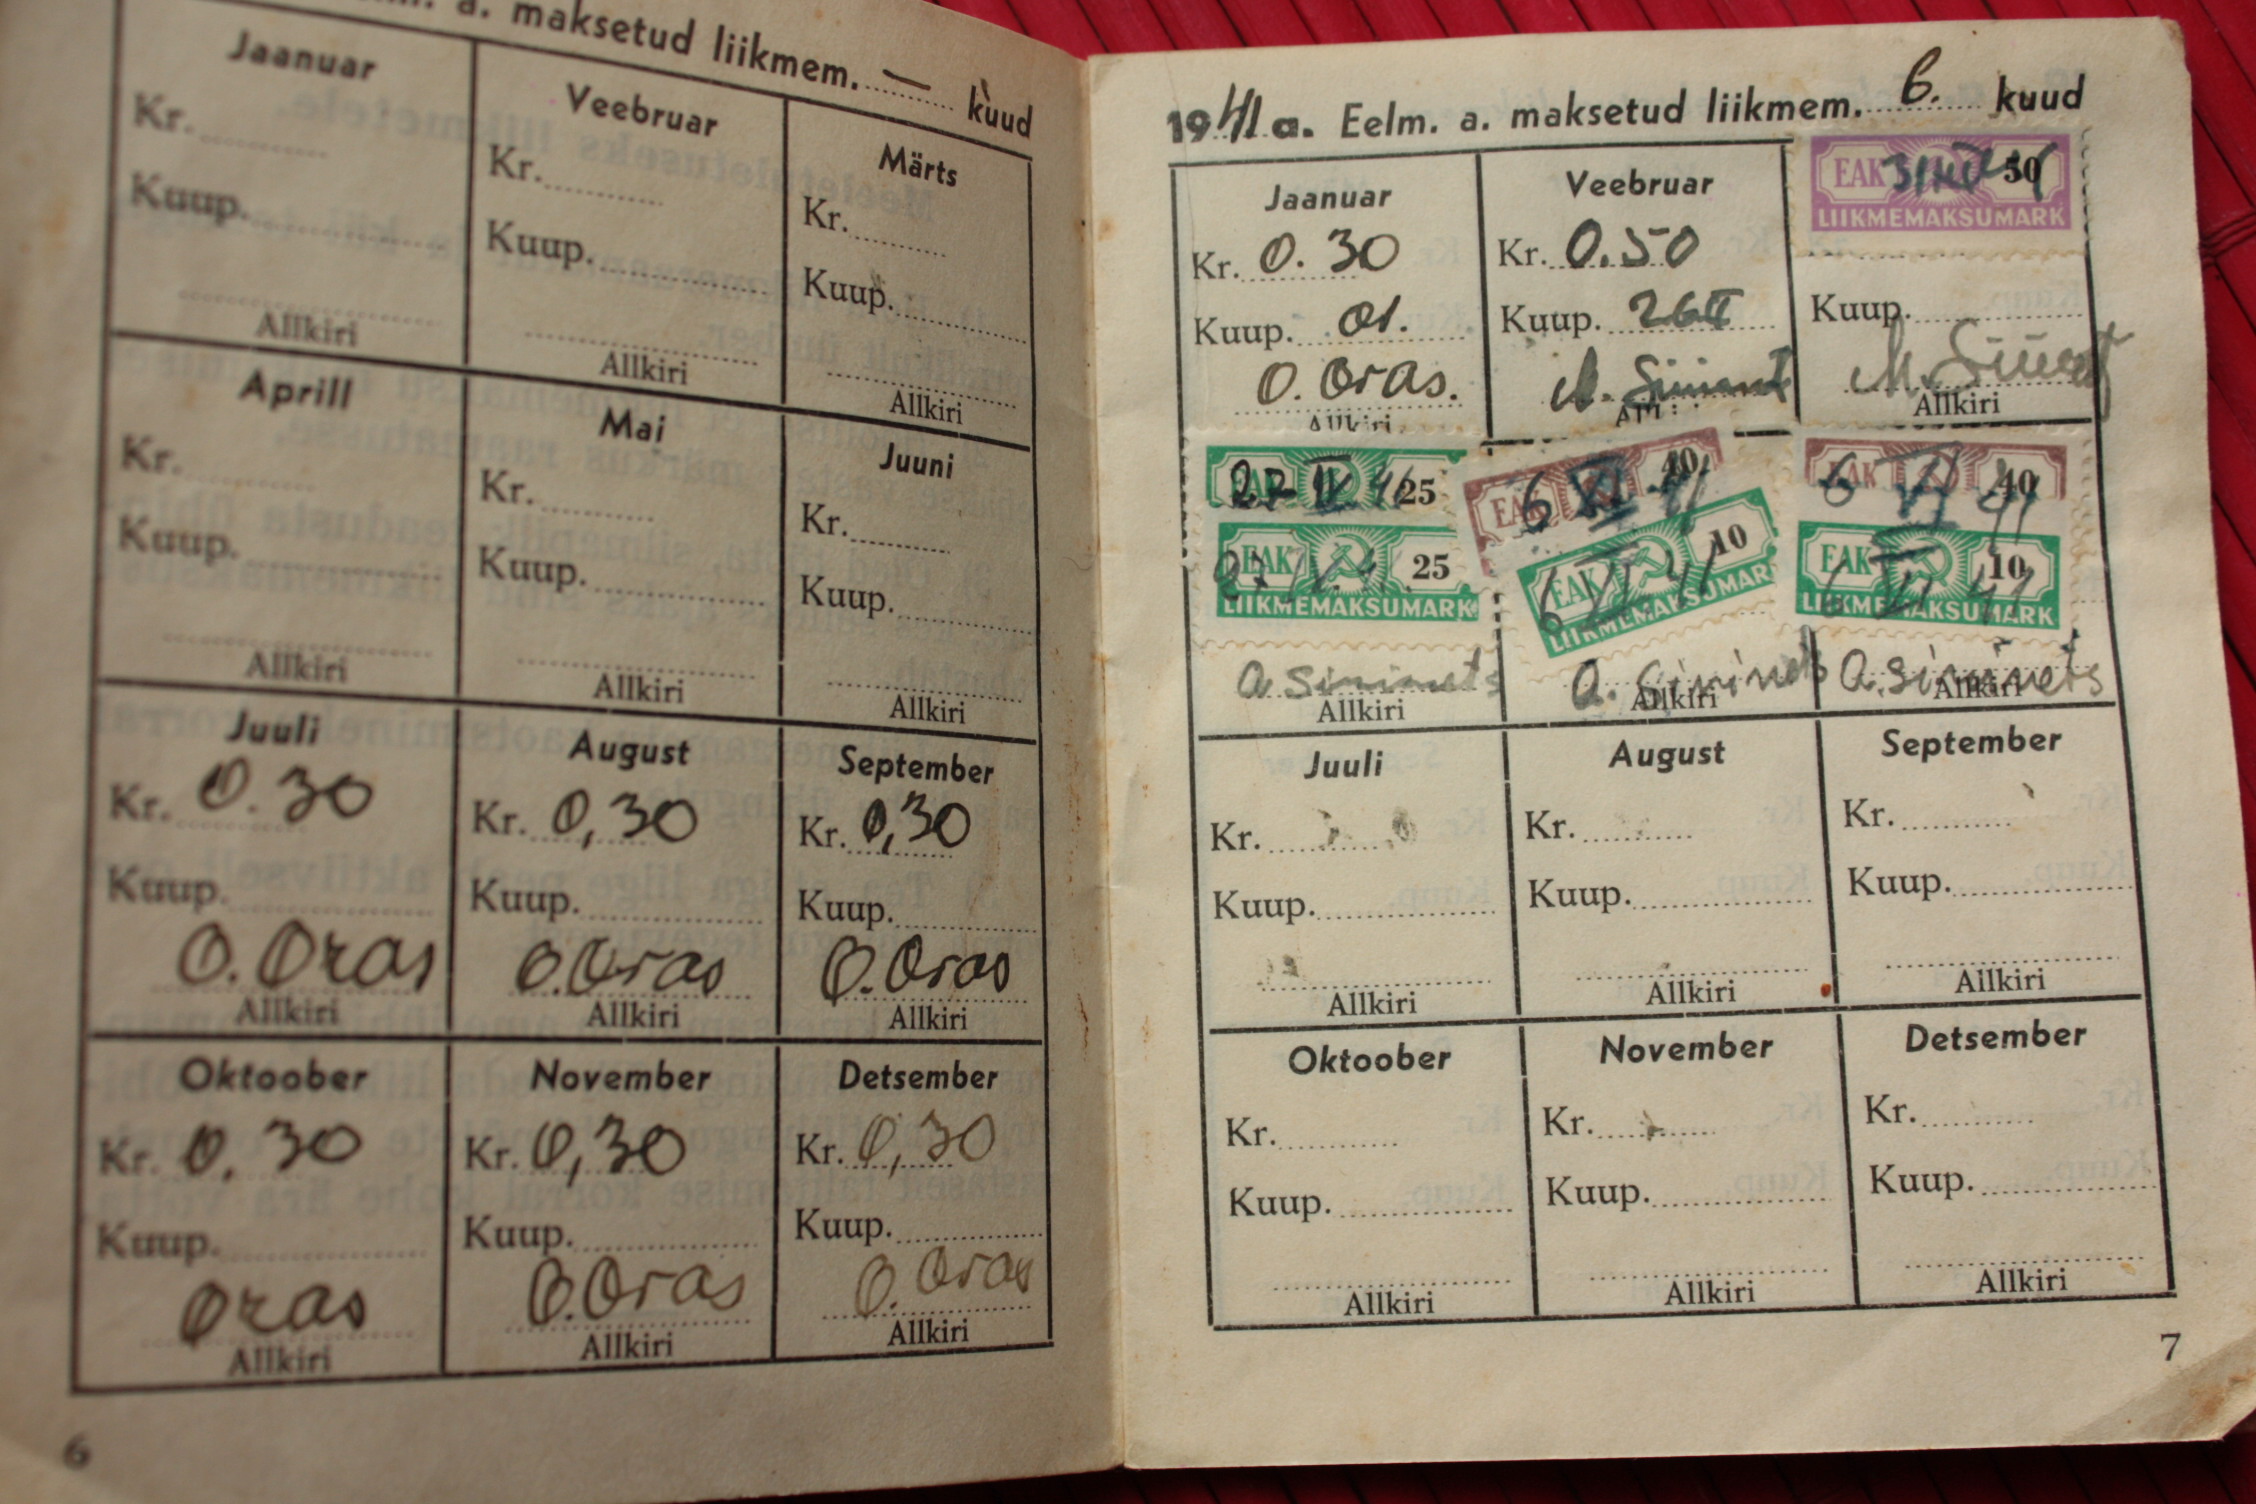 a. maksetud liikmem. — kuud
Jaanuar
Kr.
Kuup.
Allkiri
Veebruar
Kr.
Kuup.
Allkiri
Märts
Kr.
Kuup.
Allkiri
Aprill
Kr.
Kuup.
Allkiri
Mai
Kr.
Kuup.
Allkiri
Juuni
Kr.
Kuup.
Allkiri
Juuli
Kr. 0.30
Kuup.
O. Oras
Allkiri
August
Kr. 0,30
Kuup.
O. Oras
Allkiri
September
Kr. 0,30
Kuup.
O. Oras
Allkiri
Oktoober
Kr. 0.30
Kuup.
Oras
Allkiri
November
Kr. 0,30
Kuup.
O. Oras
Allkiri
Detsember
Kr. 0,30
Kuup.
O. Oras
Allkiri
6
1941 a. Eelm. a. maksetud liikmem. 6. kuud
Jaanuar
Kr. 0.30
Kuup. 01.
O. Oras.
Allkiri
Veebruar
Kr. 0.50
Kuup. 26 II
EAK 50
LIIKMEMAKSUMARK
Kuup.
Allkiri
27 IV 41 25
EAK 25
27 IV 4
LIIKMEMAKSUMARK
Allkiri
EAK 40
6 VI 41
EAK 10
6 VI 41
LIIKMEMAKSUMARK
Allkiri
EAK 40
6 VI 41
EAK 10
6 VI 41
LIIKMEMAKSUMARK
Allkiri
Juuli
Kr.
Kuup.
Allkiri
August
Kr.
Kuup.
Allkiri
September
Kr.
Kuup.
Allkiri
Oktoober
Kr.
Kuup.
Allkiri
November
Kr.
Kuup.
Allkiri
Detsember
Kr.
Kuup.
Allkiri
7